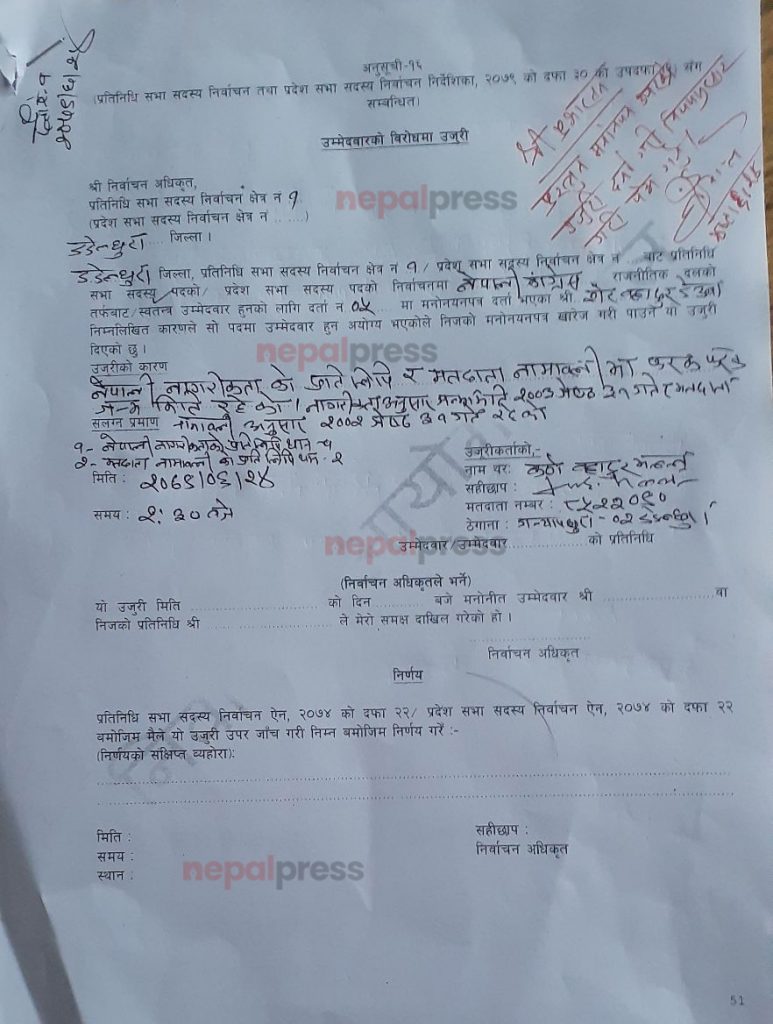 अनुसूची-१६
(प्रतिनिधि सभा सदस्य निर्वाचन तथा प्रदेश सभा सदस्य निर्वाचन निर्देशिका, २०७९ को दफा ३० को उपदफा संग
सम्बन्धित)
उम्मेदवारको बिरोधमा उजुरी
श्री निर्वाचन अधिकृत,
प्रतिनिधि सभा सदस्य निर्वाचन क्षेत्र नं १
(प्रदेश सभा सदस्य निर्वाचन क्षेत्र नं ........)
डडेल्धुरा जिल्ला ।
nepalpress
डडेल्धुरा जिल्ला, प्रतिनिधि सभा सदस्य निर्वाचन क्षेत्र नं १ / प्रदेश सभा सदस्य निर्वाचन क्षेत्र नं ... बाट प्रतिनिधि
सभा सदस्य पदको/ प्रदेश सभा सदस्य पदको निर्वाचनमा नेपाली कांग्रेस राजनीतिक दलको
तर्फबाट/स्वतन्त्र उम्मेदवार हुनको लागि दर्ता नं ०५ मा मनोनयनपत्र दर्ता भएका श्री शेर बहादुर देउवा
निम्नलिखित कारणले सो पदमा उम्मेदवार हुन अयोग्य भएकोले निजको मनोनयनपत्र खारेज गरी पाउन यो उजुरी
दिएको छु ।
nepalpress
उजुरीको कारण
नेपाली नागरीकता को प्रतिलिपि र मतदाता नामावली मा फरक फरक
जन्म मिति रहेको । नागरीकता अनुसार जन्म मिति २००३ जेष्ठ ३१ गते र मतदाता
संलग्न प्रमाण नामावली अनुसार २००२ जेष्ठ ३१ गते रहेको
१- नेपाली नागरीकताको प्रतिलिपि थान-१
२- मतदाता नामावली को प्रतिलिपि थान-१
मिति : २०७९/०६/२४
समय : २:३० बजे
उजुरीकर्ताको,-
नाम थर: बहादुर
सहीछाप :
मतदाता नम्बर :
ठेगाना : गन्यापधुरा-०२ डडेल्धुरा
उम्मेदवार/उम्मेदवार.................को प्रतिनिधि
nepalpress
(निर्वाचन अधिकृतले भर्ने)
यो उजुरी मिति ......................... को दिन........... बजे मनोनीत उम्मेदवार श्री ......................... वा
निजको प्रतिनिधि श्री ......................... ले मेरो समक्ष दाखिल गरेको हो ।
निर्वाचन अधिकृत
निर्णय
प्रतिनिधि सभा सदस्य निर्वाचन ऐन, २०७४ को दफा २२/ प्रदेश सभा सदस्य निर्वाचन ऐन, २०७४ को दफा २२
बमोजिम मैले यो उजुरी उपर जाँच गरी निम्न बमोजिम निर्णय गरें :-
(निर्णयको संक्षिप्त व्यहोरा):
मिति :
समय :
स्थान :
सहीछाप :
निर्वाचन अधिकृत
nepalpress
51